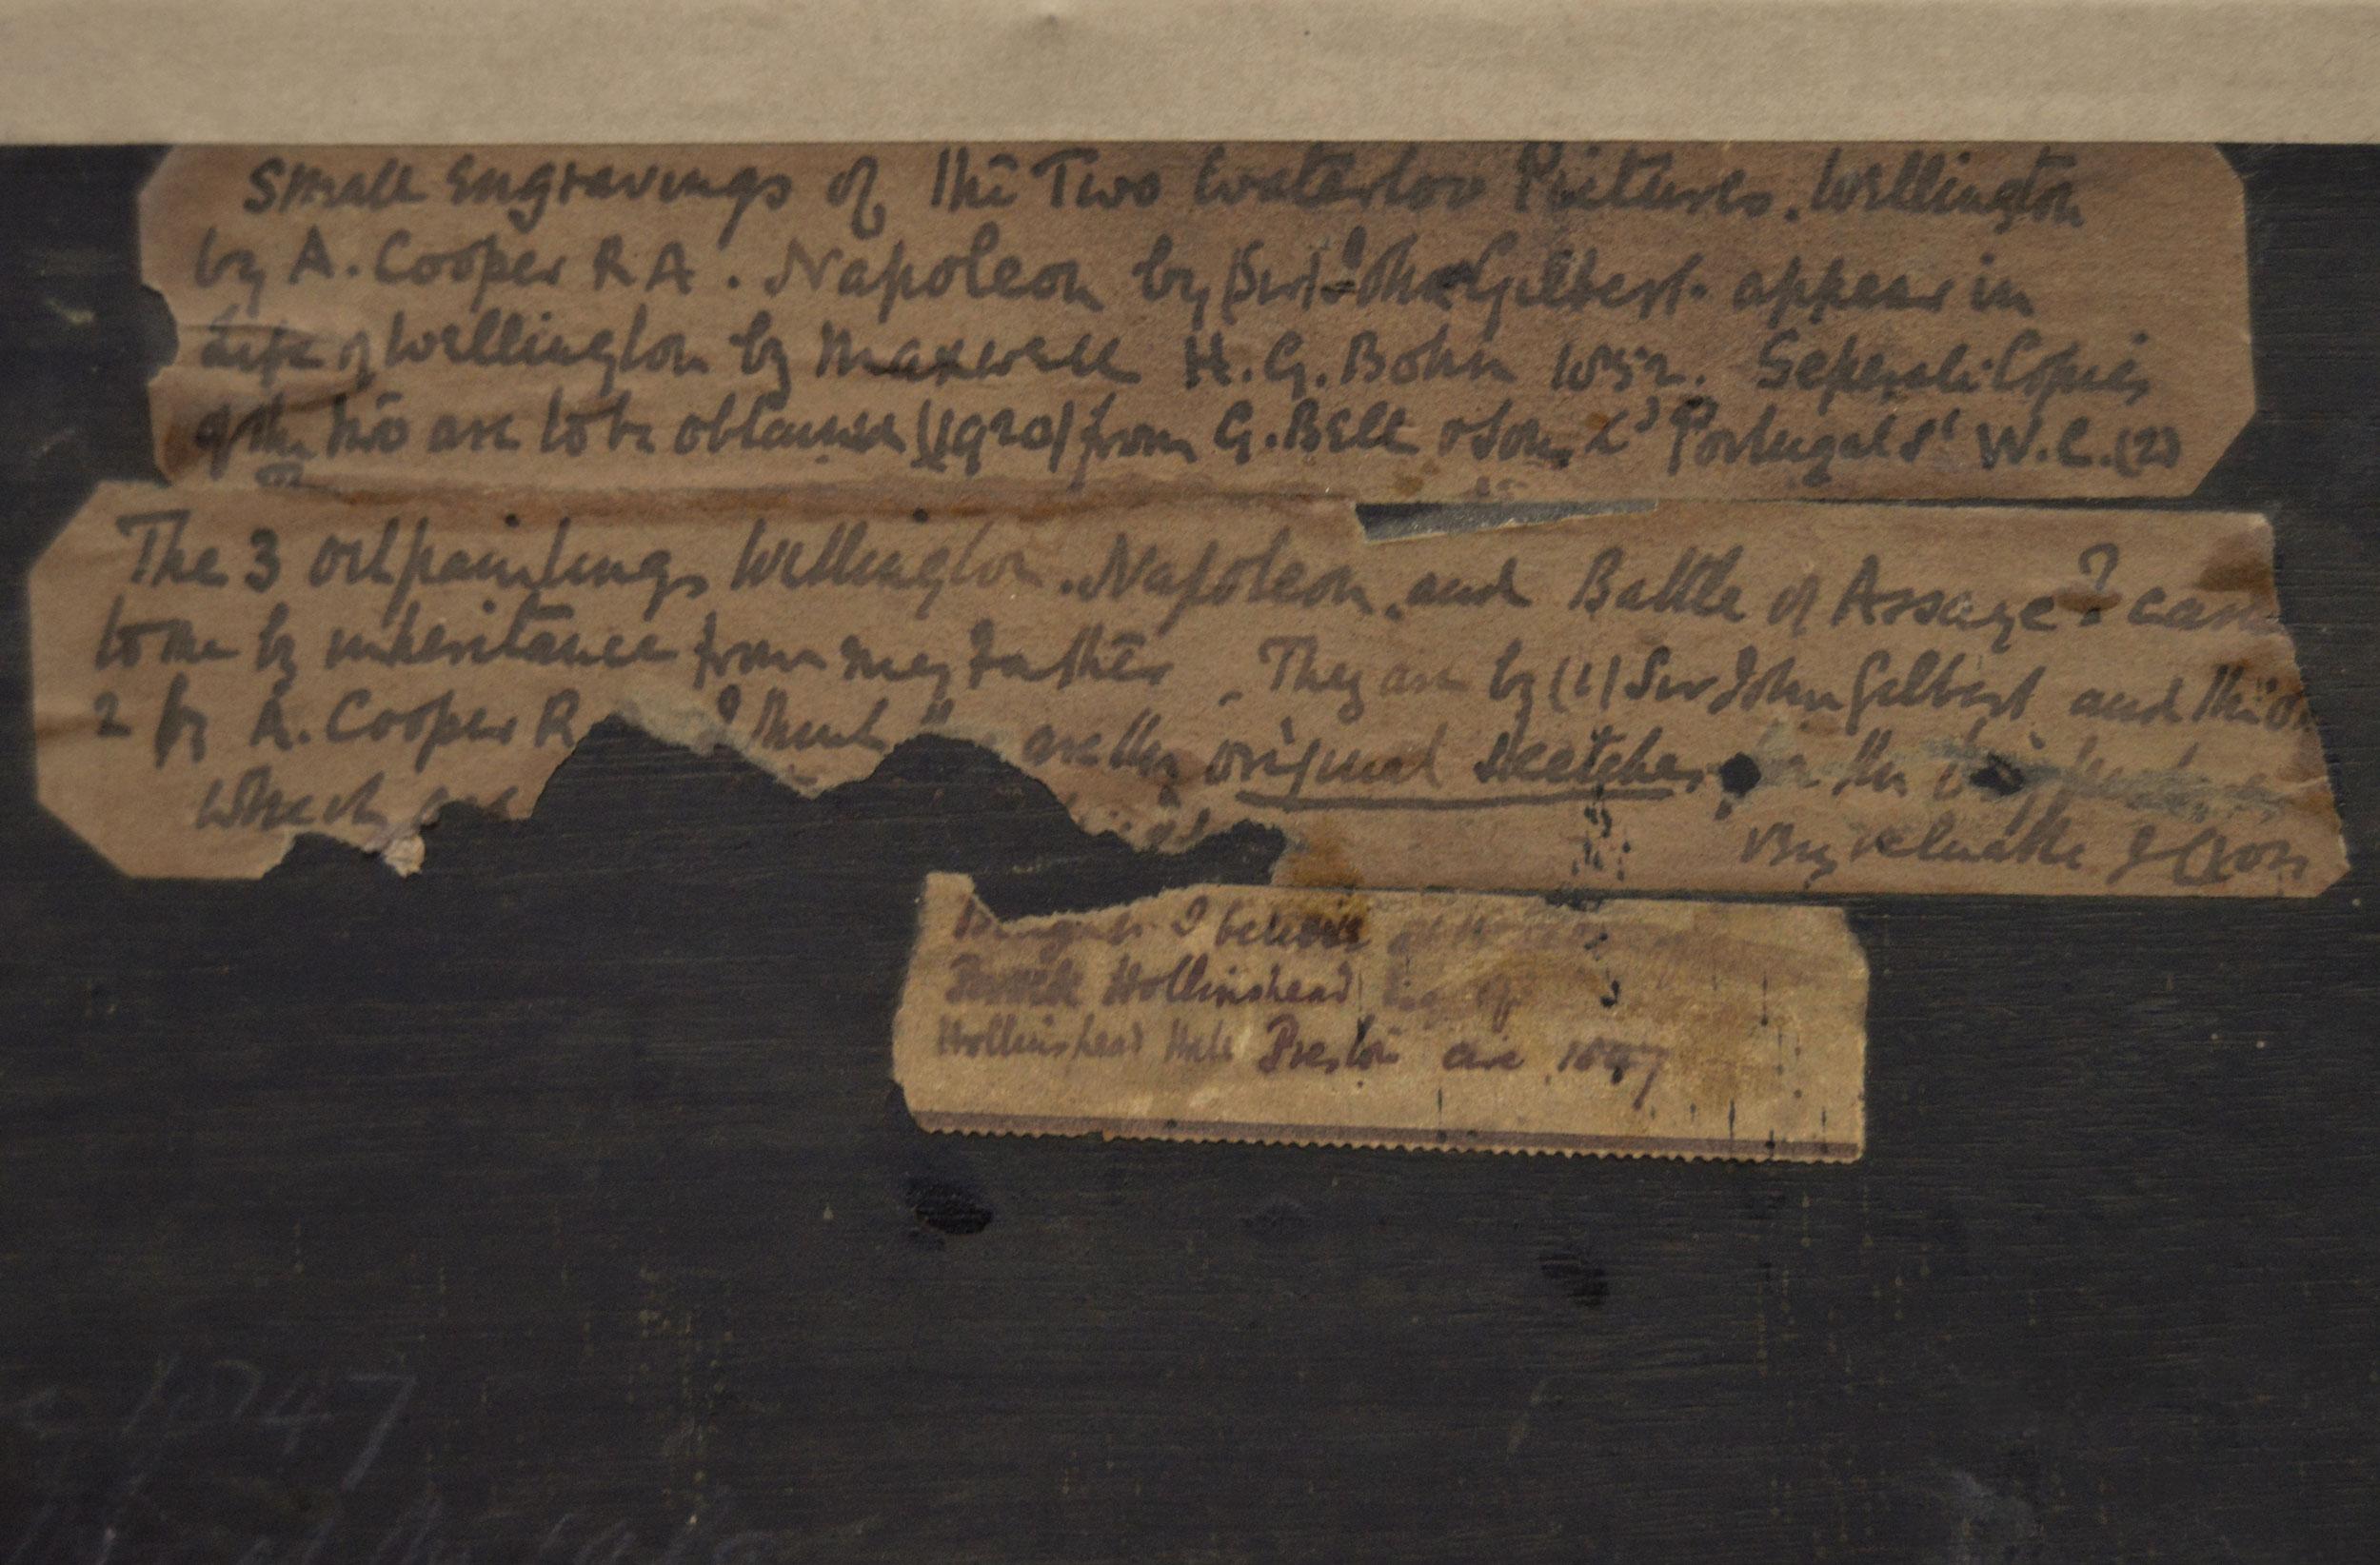 Small Engravings of the Two Waterloo Pictures. Wellington
by A. Cooper R A. Napoleon by (Sir) John Gilbert. appear in
Life of Wellington by Maxwell H. G. Bohn 1852. Seperate Copies
of the two are to be obtained (1920) from G. Bell & Son, Portugal St W.C.(2)
The 3 oil paintings Wellington. Napoleon, and Battle of Assaye? came
to me by inheritance from my Father. They are by (1) Sir John Gilbert and the
2 by A. Cooper R I think are the original sketches for the
which are
Very valuable
Bought I believe at
Hollinshead Esq of
Hollinshead Hall Preston circ 1847
c 1847